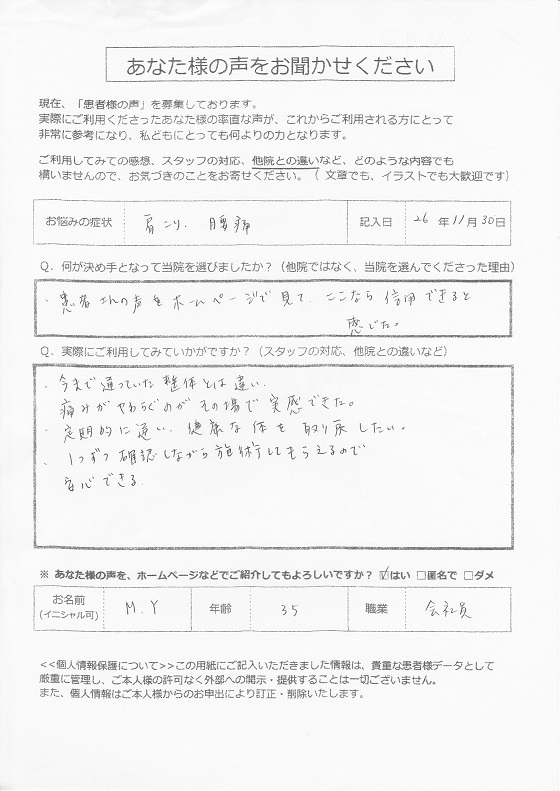 あなた様の声をお聞かせください
現在、「患者様の声」を募集しております。
実際にご利用くださったあなた様の率直な声が、これからご利用される方にとって
非常に参考になり、私どもにとっても何よりの力となります。
ご利用してみての感想、スタッフの対応、他院との違いなど、どのような内容でも
構いませんので、お気づきのことをお寄せください。（ 文章でも、イラストでも大歓迎です）
お悩みの症状 肩こり、腰痛 記入日 26 年 11 月 30 日
Q．何が決め手となって当院を選びましたか？（他院ではなく、当院を選んでくださった理由）
・患者さんの声をホームページで見て、ここなら信用できると
感じた。
Q．実際にご利用してみていかがですか？（スタッフの対応、他院との違いなど）
・今まで通っていた整体とは違い、
痛みがやわらぐのがその場で実感できた。
・定期的に通い、健康な体を取り戻したい。
・1つずつ確認しながら施術してもらえるので
安心できる。
※ あなた様の声を、ホームページなどでご紹介してもよろしいですか？ ☑はい □匿名で □ダメ
お名前
(イニシャル可) M.Y 年齢 35 職業 会社員
<<個人情報保護について>>この用紙にご記入いただきました情報は、貴重な患者様データとして
厳重に管理し、ご本人様の許可なく外部への開示・提供することは一切ございません。
また、個人情報はご本人様からのお申出により訂正・削除いたします。